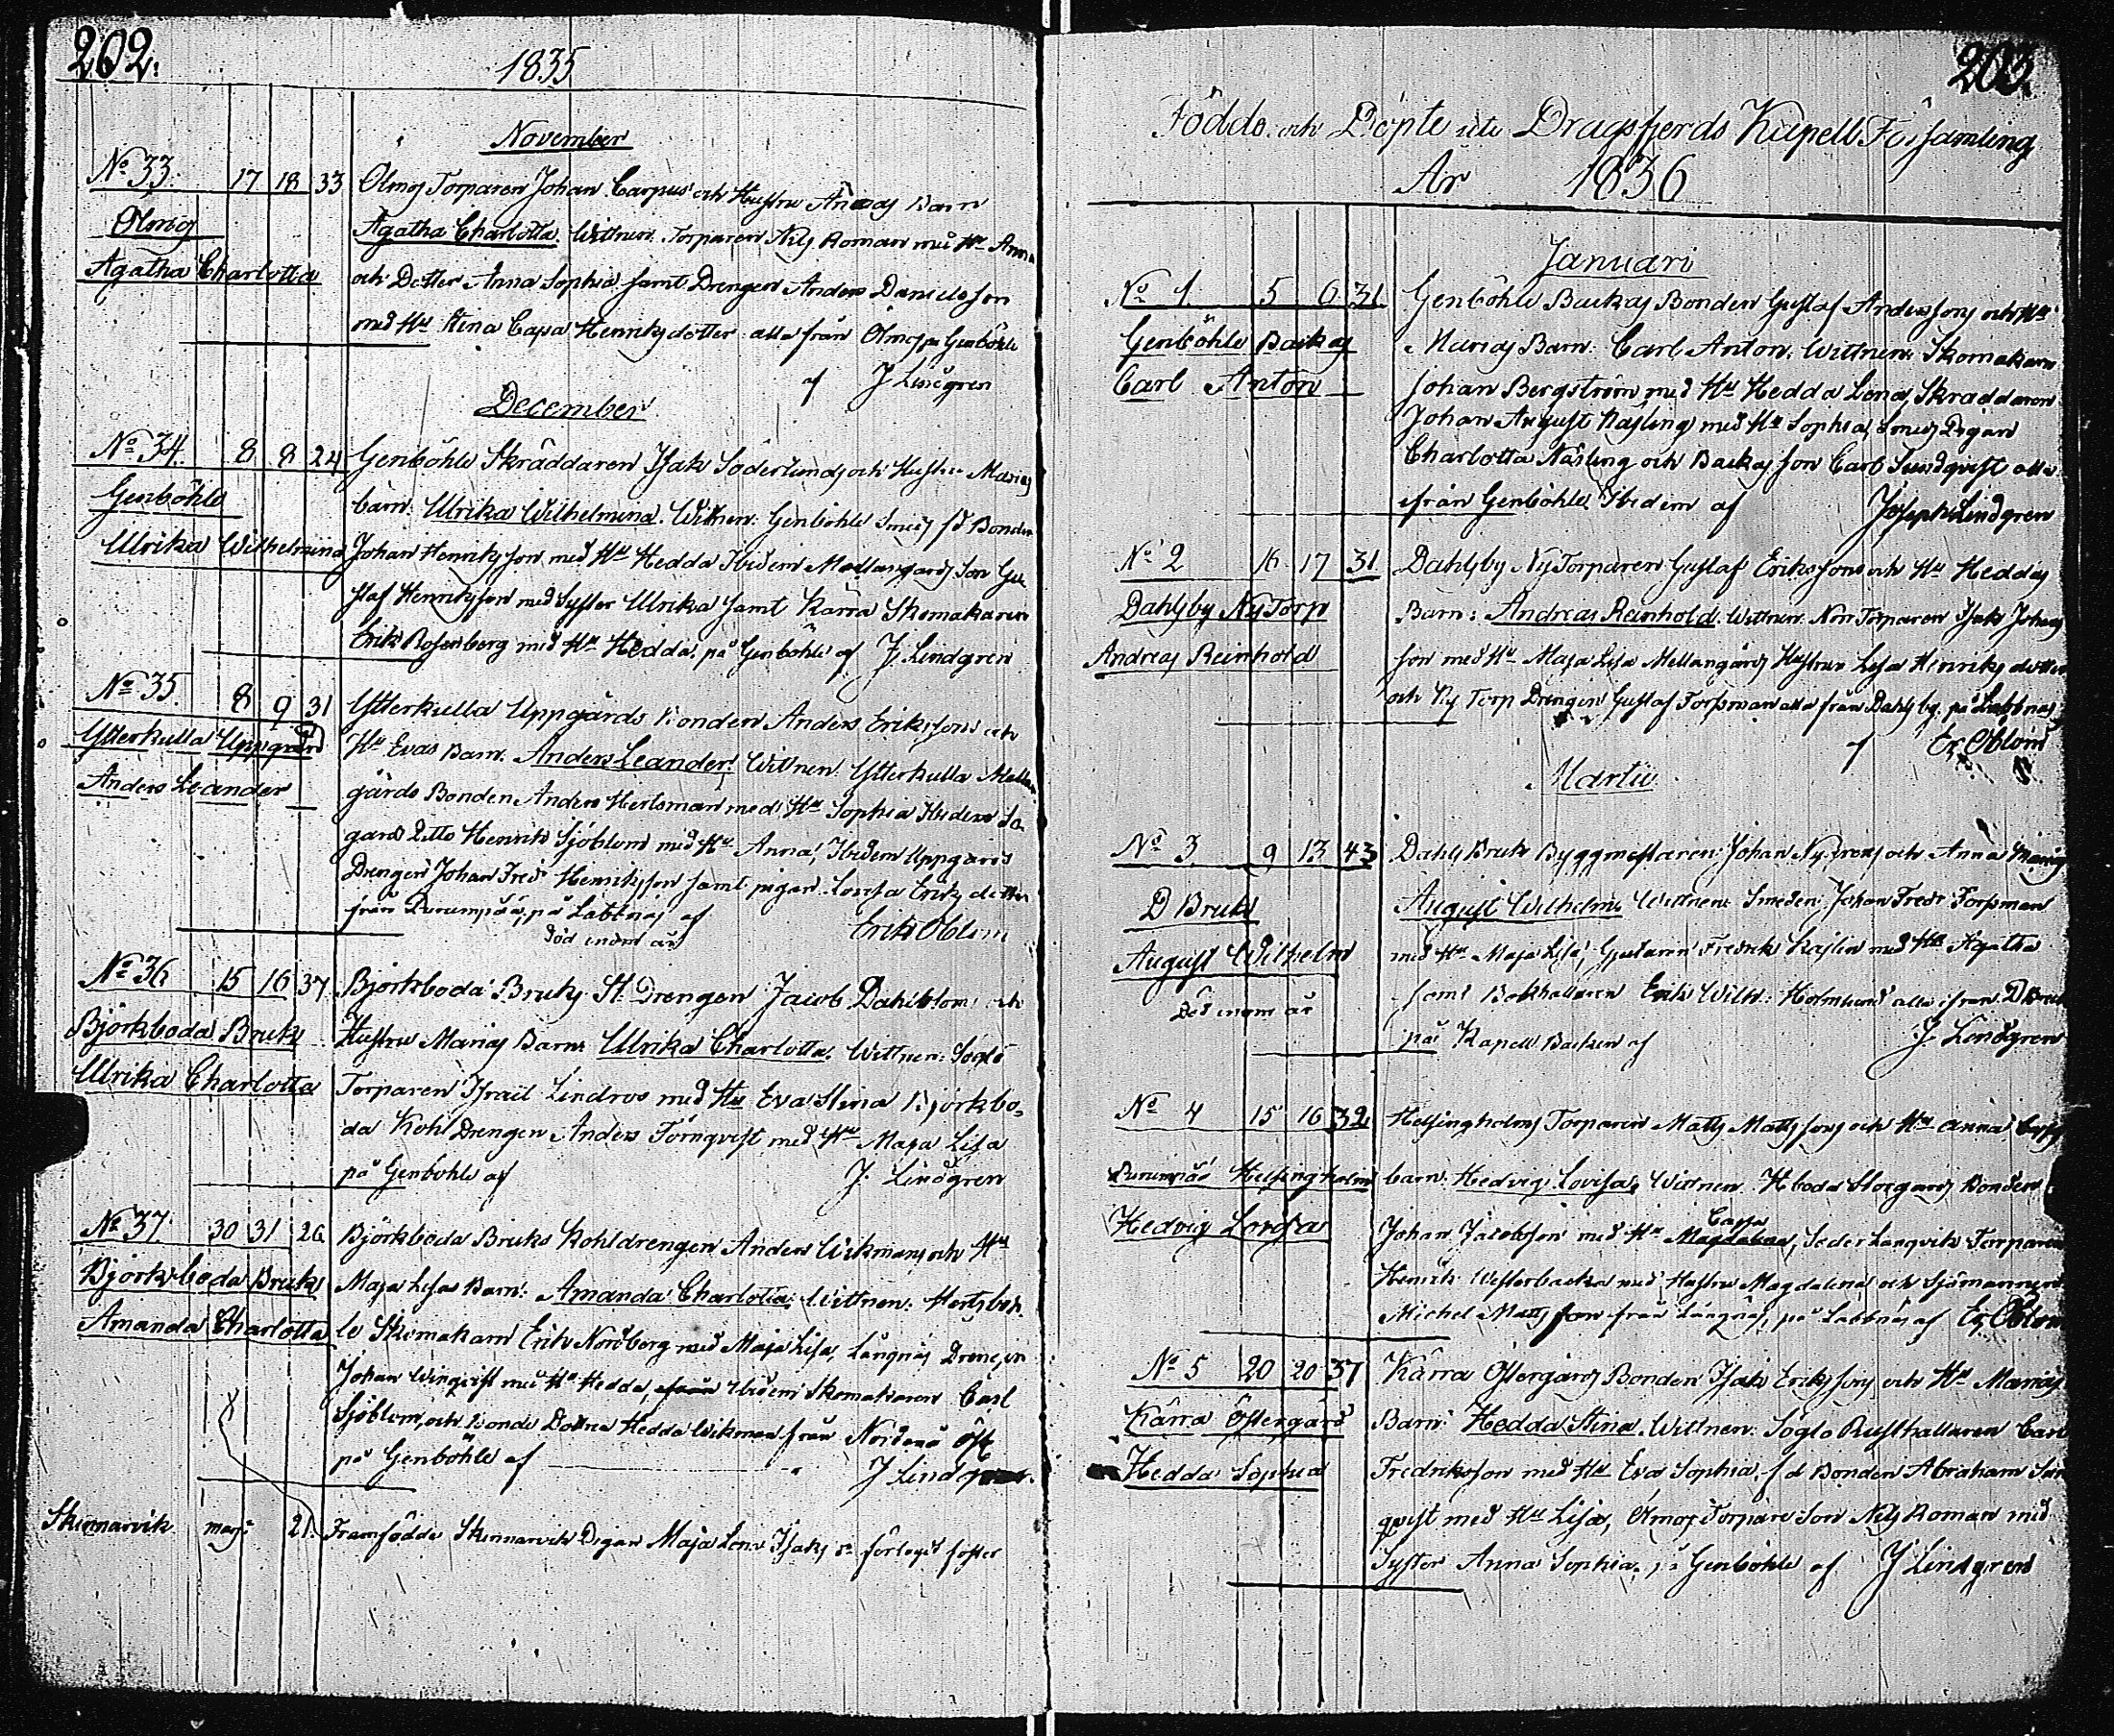 202.
1835
November
No 33. 17 18 33 Olmos Torparen Johan Carpus och Hustru Annas Barn
Olmos
Agatha Charlotta. Wittnen. Torparen Nils Roman med Hu Anna
Agatha Charlotta
och Dotter Anna Sophia samt Drengen Anders Danielsson
med Hu Stina Cajsa Henriksdotter alla från Ölmos, på Genböhle
af J Lindgren
December
No 34. 8 8 24 Genböhle Skräddaren Isak Söderlunds och Hustru Marias
Genböhle
barn: Ulrika Wilhelmina. Wittnen: Genböhle Smeds fd Bonden
Ulrika Wilhelmina
Johan Henriksson med Hu Hedda Ibidem Mellangårds Son Gu
staf Henriksson med Syster Ulrika samt Kärra Skomakaren
Erik Rosenberg med Hu Hedda. på Genböhle af J. Lindgren
No 35 8 9 31 Ytterkulla Uppgårds Bonden Anders Erikssons och
Ytterkulla Uppgård
Hu Evas Barn. Anders Leander. Wittnen: Ytterkulla Mellan
Anders Leander
gårds Bonden Anders Herlsman med Hu Sophia Ibidem
gård Ditto Henrik Sjöblom med Hu Anna, Ibidem Uppgårds
Drengen Johan Fred Henriksson samt pigan Lovisa Eriks dotter
från Purunpää, på Labbnäs af Erik Oblom
död inom år
No 36 15 16 37 Björkboda Bruks St. Drengen Jacob Dahlblom och
Björkboda Bruk
Hustru Marias Barn. Ulrika Charlotta. Wittnen: Söglö
Ulrika Charlotta
Torparen Israel Lindros med Hu Eva Stina Björkbo-
da Kohl Drengen Anders Törnqvist med Hu Maja Lisa
på Genböhle af J. Lindgren
No 37. 30 31 26 Björkboda Bruks Kohldrengen Anders Wikmans och Hu
Björkboda Bruk
Maja Lisas Barn: Amanda Charlotta. Wittnen: Hertsböh
Amanda Charlotta
le Skomakarn Erik Nordberg med Maja Lisa, Långnäs Drengen
Johan Winqvist med Hu Hedda, Ibidem Skomakaren Carl
Sjöblom, och Bonde Dottren Hedda Wikman från Nordanå
på Genböhle af J Lindgren
Skinnarvik 21. Framfödde Skinnarvik Pigan Maja Lena Isaks dr förlagit foster
203.
Födde och Döpte uti Dragsfjerds Kapell Församling
År 1836
Januari
No 1. 5 6 31 Genböhle Backas Bonden Gustaf Anderssons och Hu
Genböhle Backas
Marias Barn: Carl Anton. Wittnen: Skomakaren
Carl Anton
Johan Bergström med Hu Hedda Lena, Skräddaren
Johan August Näsling med Hu Sophia, Smeds Pigan
Charlotta Näsling och Backas Son Carl Sundqvist alla
ifrån Genböhle Ibidem af Joseph Lindgren
No 2 16 17 31 Dahlsby Ny Torparen Gustaf Erikssons och Hu Heddas
Dahlsby Ny Torp
Barn: Andreas Reinhold. Wittnen. Torparen Isak Johans
Andreas Reinhold
son med Hu Maja Lisa Mellangårds Hustrun Lisa Henriks dotter
och Ny Torp Drengen Gustaf Forsman alla från Dahlsby, på Labbnäs
af Er. Oblom
Martii
No 3. 9 13 43 Dahls Bruk Byggmästaren Johan Nygrens och Anna Marias
D Bruk
August Wilhelm. Wittnen: Smeden Johan Fredr Forsman
August Wilhelm
med Hu Maja Lisa, Gjutaren Fredrik Kajlin med Hu Agatha
samt Bokhållaren Erik Wilh: Holmlund alla ifrån D Bruk
Död inom år
på Kapell Backen af J. Lindgren
No 4 15 16 32 Helsingholms Torparen Matts Mattssons och Hu Anna Cajsas
Purunpää Helsingholm
barn: Hedvig Lovisa. Wittnen. Storgårds Bonden
Hedvig Lovisa
Johan Jacobsson med Hu Cajsa, Söderlangvik Torparen
Henrik Westerbacka med Hustru Magdalena och Sjömannen
Michel Mattsson från Långnäs, på Labbnäs af Er Oblom
No 5 20 20 37 Kärra Östergårds Bonden Isak Erikssons och Hu Marias
Kärra Östergård
Barn: Hedda Stina. Wittnen. Söglö Rusthållaren Carl
Hedda Sophia
Fredriksson med Hu Eva Sophia, fd Bonden Abraham
qvist med Hu Lisa, Ölmos Torpare Son Nils Roman med
Syster Anna Sophia, på Genböhle af J Lindgren